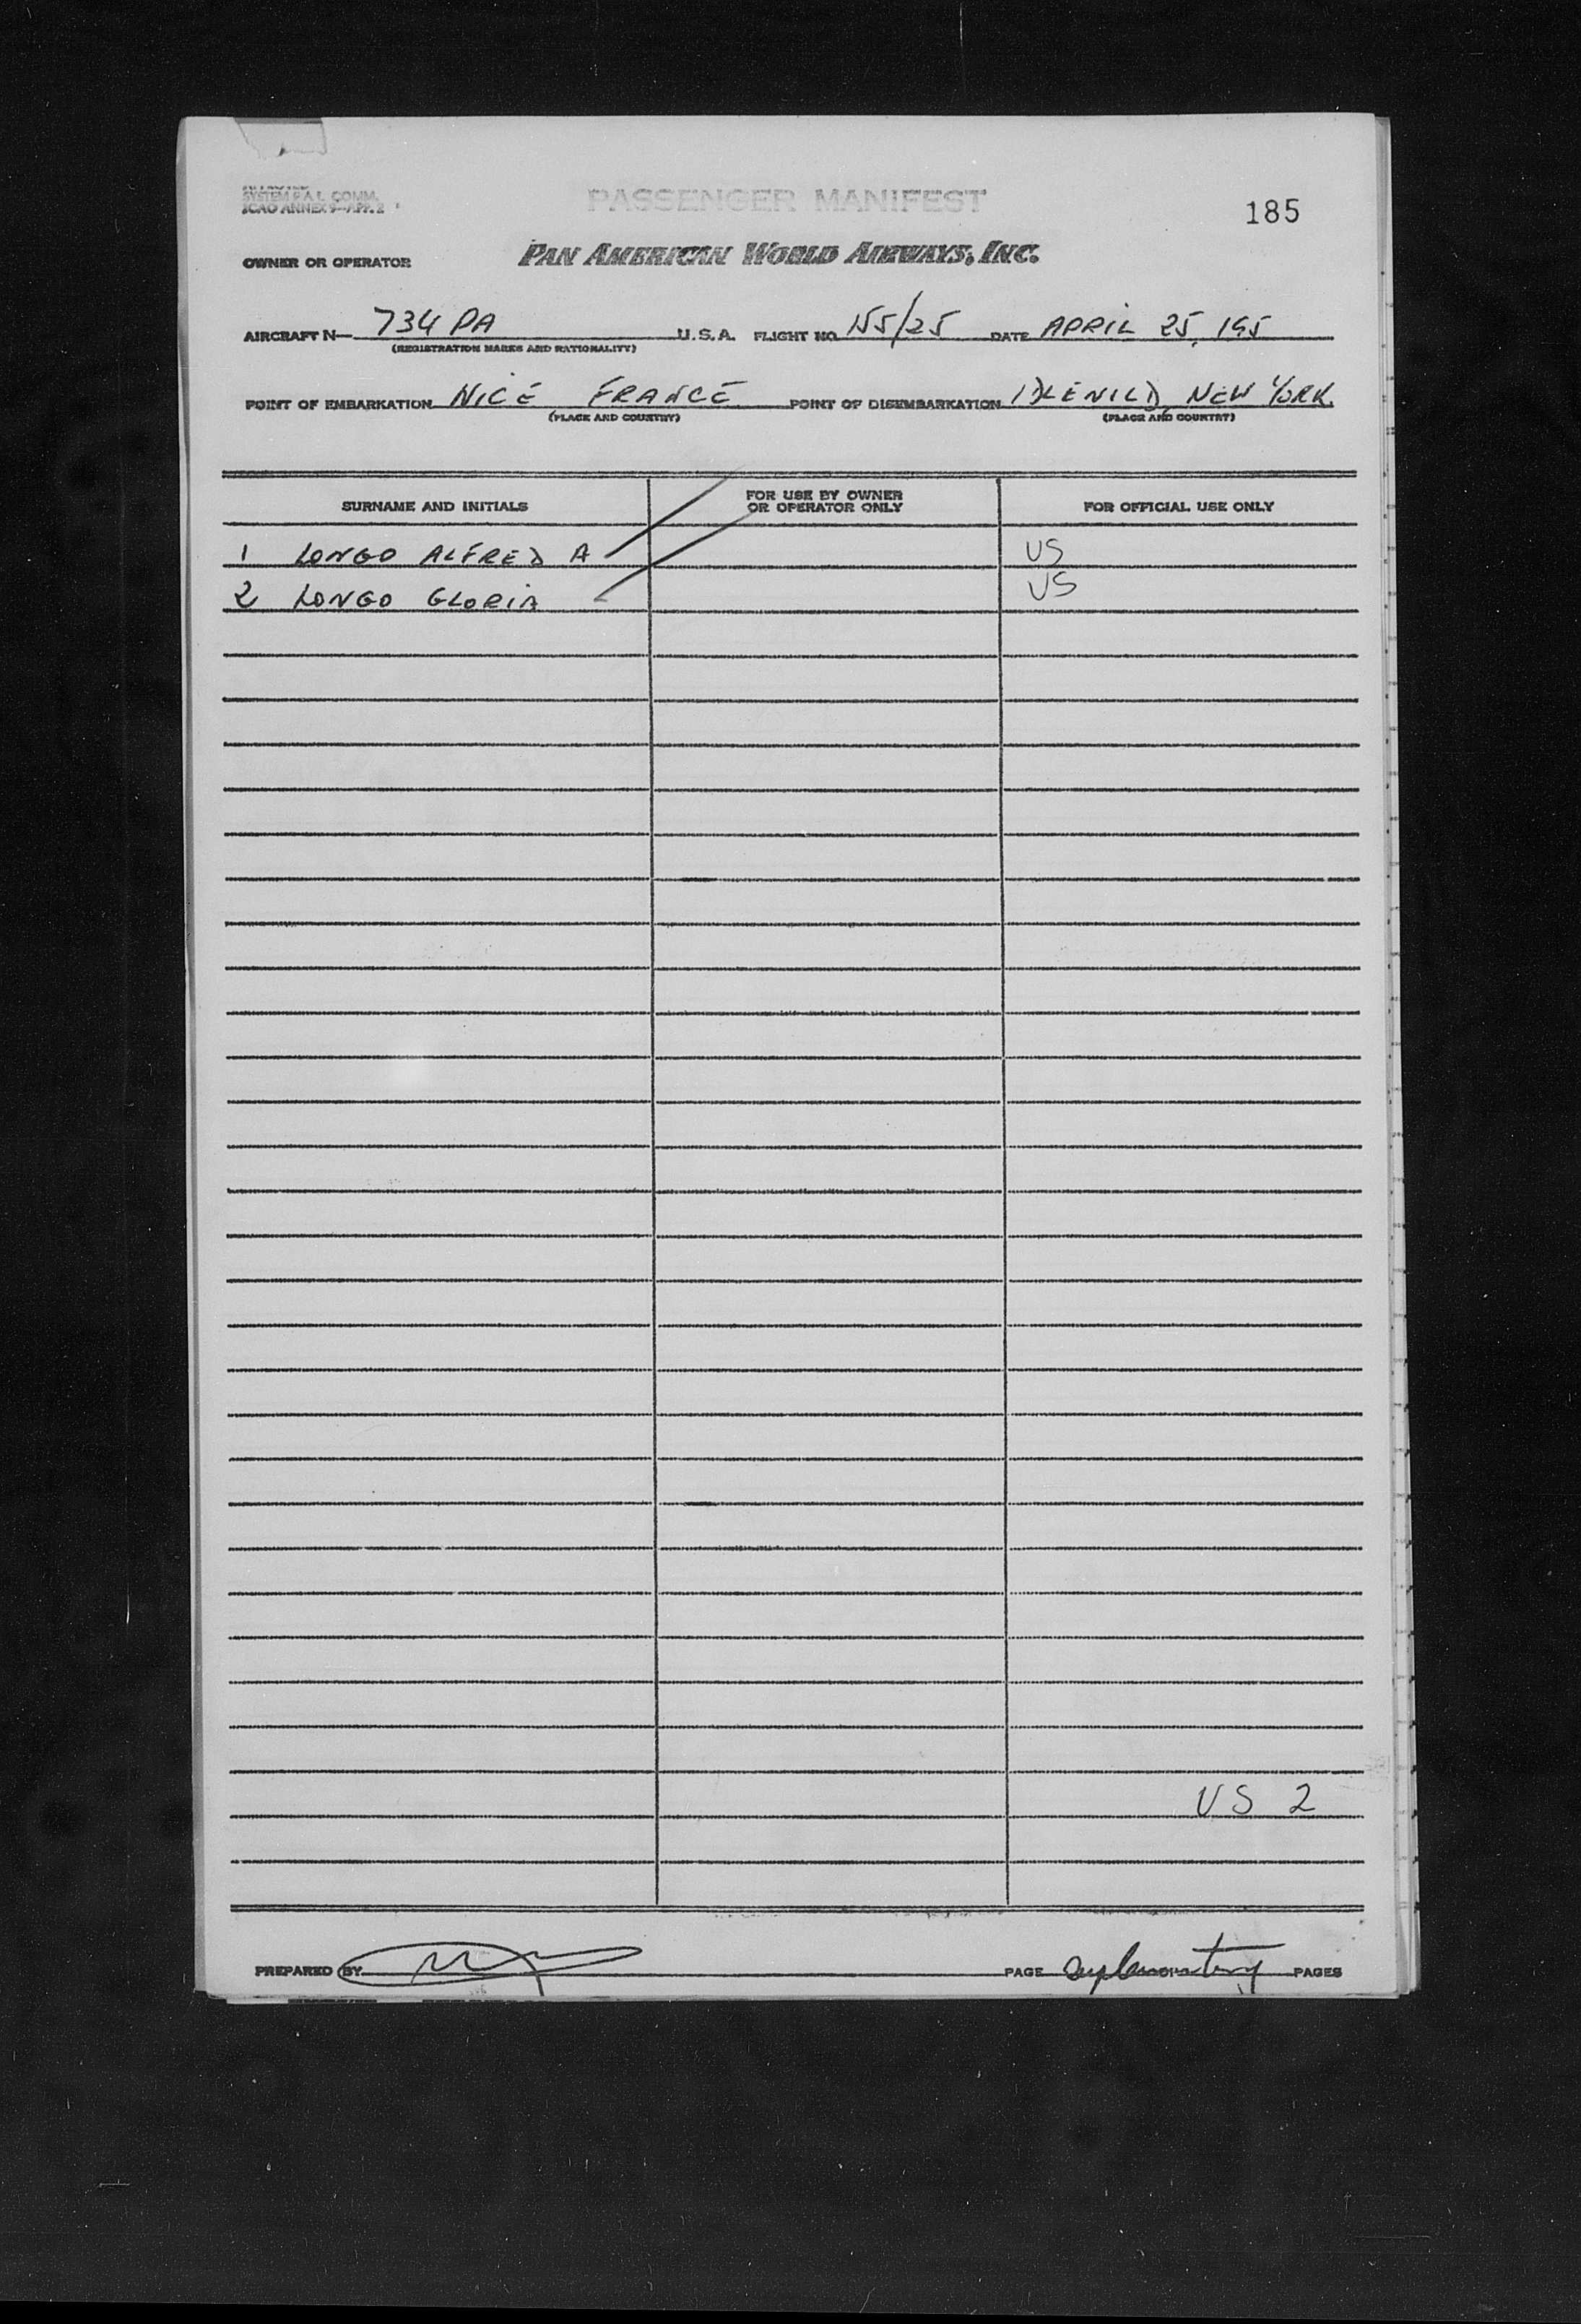 APPROVED
SYSTEM F.A.L. COMM.
ICAO ANNEX 9—APP. 2
PASSENGER MANIFEST
185
OWNER OR OPERATOR PAN AMERICAN WORLD AIRWAYS, INC.
AIRCRAFT N— 734 PA U.S.A. FLIGHT NO. 155/25 DATE APRIL 25, 195
(REGISTRATION MARKS AND NATIONALITY)
POINT OF EMBARKATION NICE FRANCE POINT OF DISEMBARKATION IDLEWILD, NEW YORK.
(PLACE AND COUNTRY) (PLACE AND COUNTRY)
SURNAME AND INITIALS FOR USE BY OWNER OR OPERATOR ONLY FOR OFFICIAL USE ONLY
1 LONGO ALFRED A US
2 LONGO GLORIA US
US 2
PREPARED BY PAGE PAGES